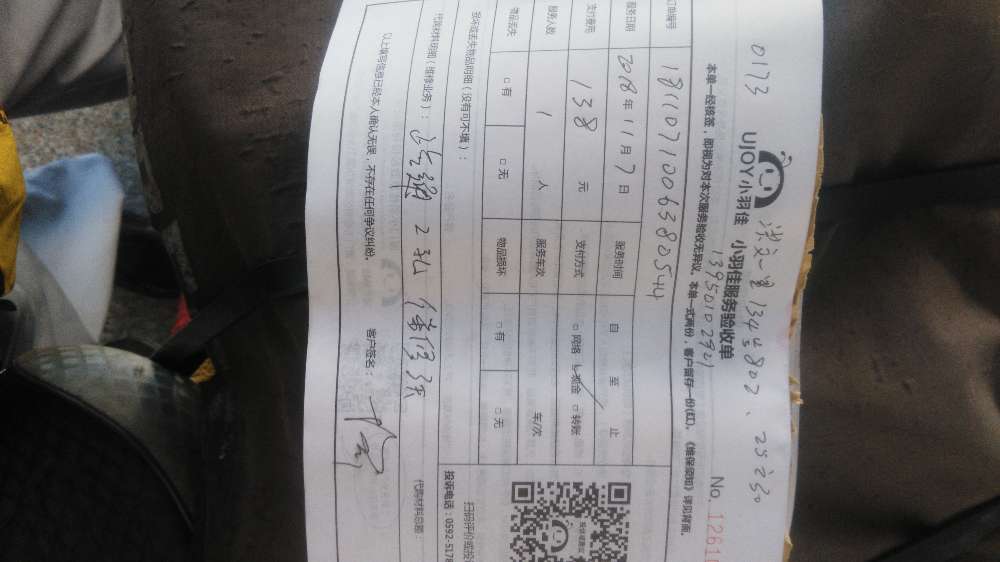 0173
UJOY小羽佳 小羽佳服务验收单
13950102921
No. 1261
本单一经核签，即视为对本次服务验收无异议。本单一式两份，客户留存一份(红)。《维保须知》详见背面。
订单编号 18110710063820544
服务日期 2018年11月7日 服务时间 自 至 止
支付费用 138元 支付方式 □网络 ☑现金 □转账
服务人数 1人 服务车次 车/次
物品丢失 □有 □无 物品损坏 □有 □无
损坏或丢失物品明细（没有可不填）：
代购材料明细（维修业务）：
代购材料总额：
以上填写信息已经本人确认无误，不存在任何争议纠纷。 客户签名：
扫码评价或投
投诉电话：0592-5178